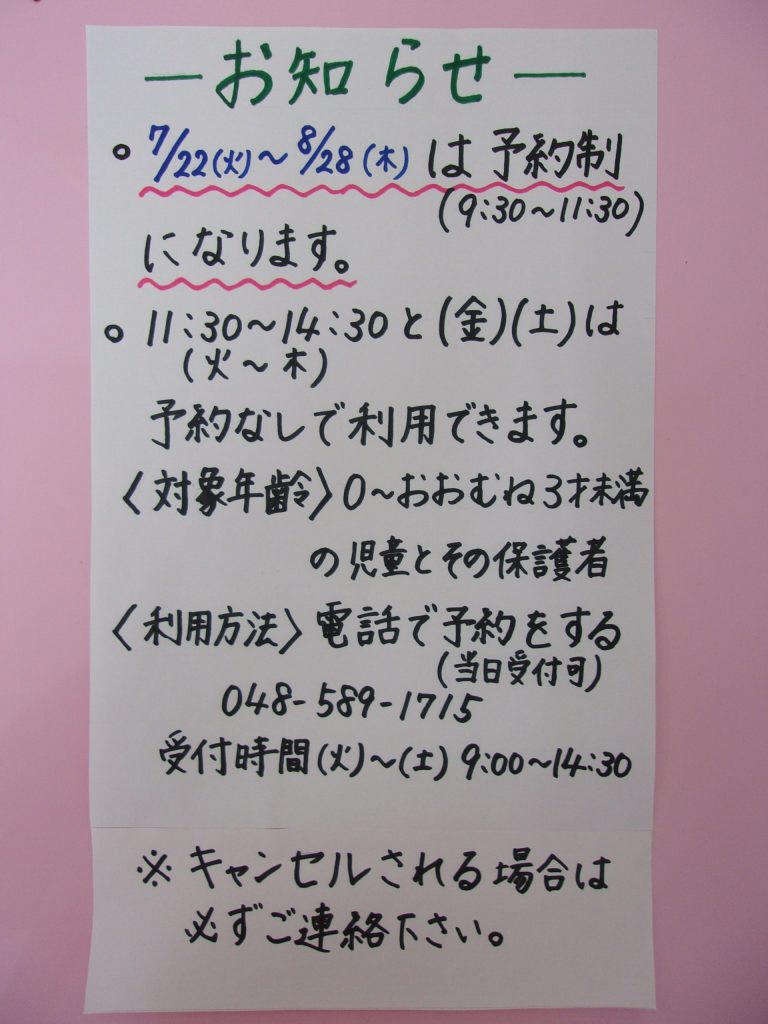 ―お知らせ―
○ 7/22(火)～8/28(木)は予約制
(9:30～11:30)
になります。
○ 11:30～14:30と(金)(土)は
(火～木)
予約なしで利用できます。
〈対象年齢〉0～おおむね3才未満
の児童とその保護者
〈利用方法〉電話で予約をする
(当日受付可)
048-589-1715
受付時間(火)～(土)9:00～14:30
※キャンセルされる場合は
必ずご連絡下さい。